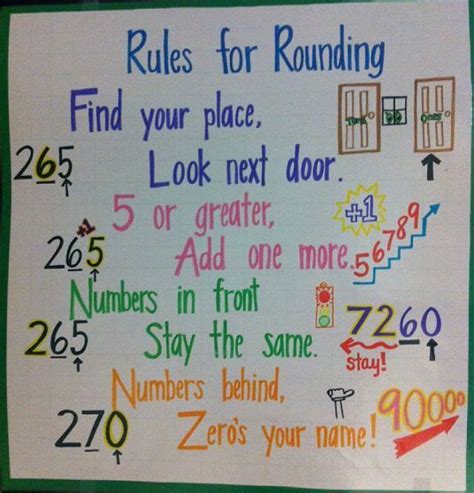 Rules for Rounding
Find your place,
Tens Ones
265
Look next door.
5 or greater,
+1
+1
56789
265
Add one more.
Numbers in front
265
7260
Stay the same.
Stay!
Numbers behind,
270
Zero's your name!
90000